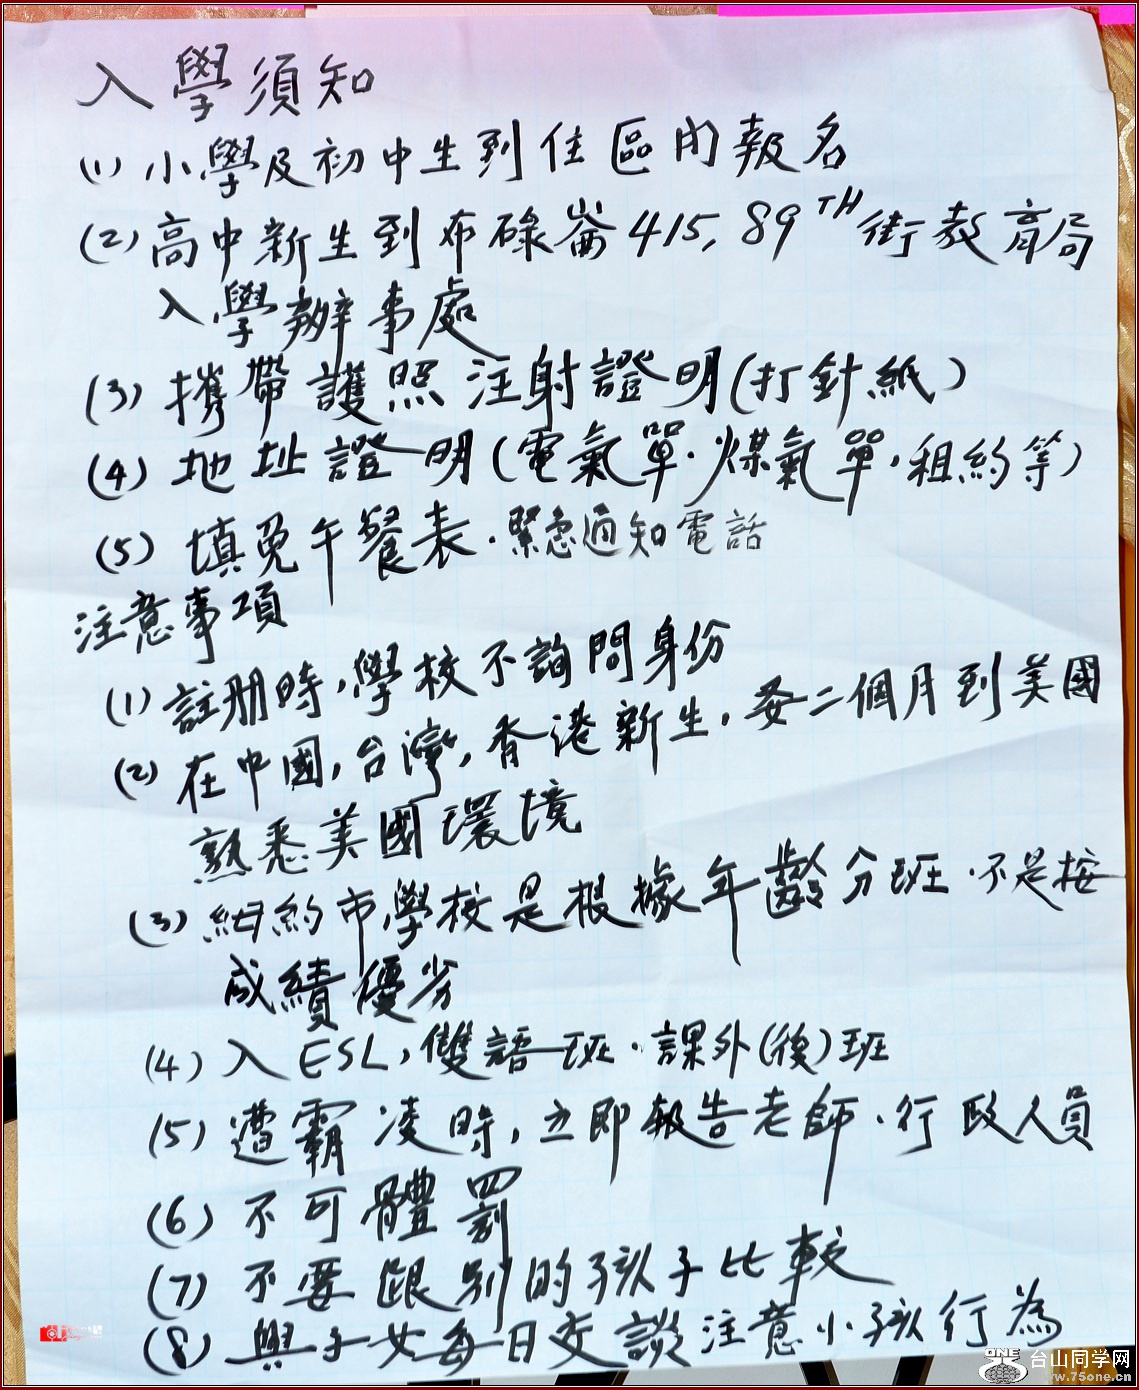 入學須知
(1) 小學及初中生到住區內報名
(2) 高中新生到布碌崙415, 89TH街教育局
入學辦事處
(3) 攜帶護照注射證明(打針紙)
(4) 地址證明(電氣單.煤氣單,租約等)
(5) 填免午餐表.緊急通知電話
注意事項
(1) 註册時,學校不詢問身份
(2) 在中國,台灣,香港新生,每二個月到美國
熟悉美國環境
(3) 紐約市學校是根據年齡分班.不是按
成績優劣
(4) 入ESL,雙語班.課外(後)班
(5) 遭霸凌時,立即報告老師.行政人員
(6) 不可體罰
(7) 不要跟別的孩子比較
(8) 與子女每日交談注意小孩行為
ONE 台山同学网
www.75one.cn